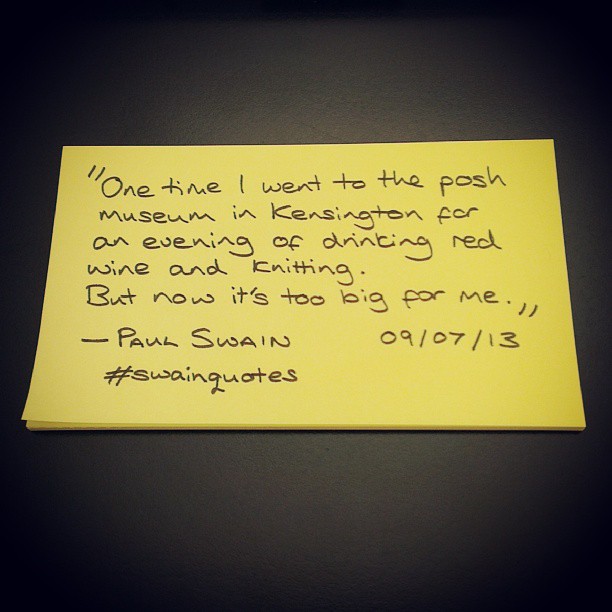 "One time I went to the posh
museum in Kensington for
an evening of drinking red
wine and knitting.
But now it's too big for me."
— PAUL SWAIN 09/07/13
#swainquotes